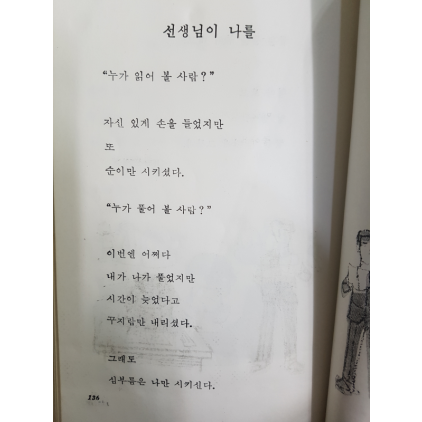 선생님이 나를
“누가 읽어 볼 사람?”
자신 있게 손을 들었지만
또
순이만 시키셨다.
“누가 풀어 볼 사람?”
이번엔 어쩌다
내가 나가 풀었지만
시간이 늦었다고
꾸지람만 내리셨다.
그래도
심부름은 나만 시키신다.
126